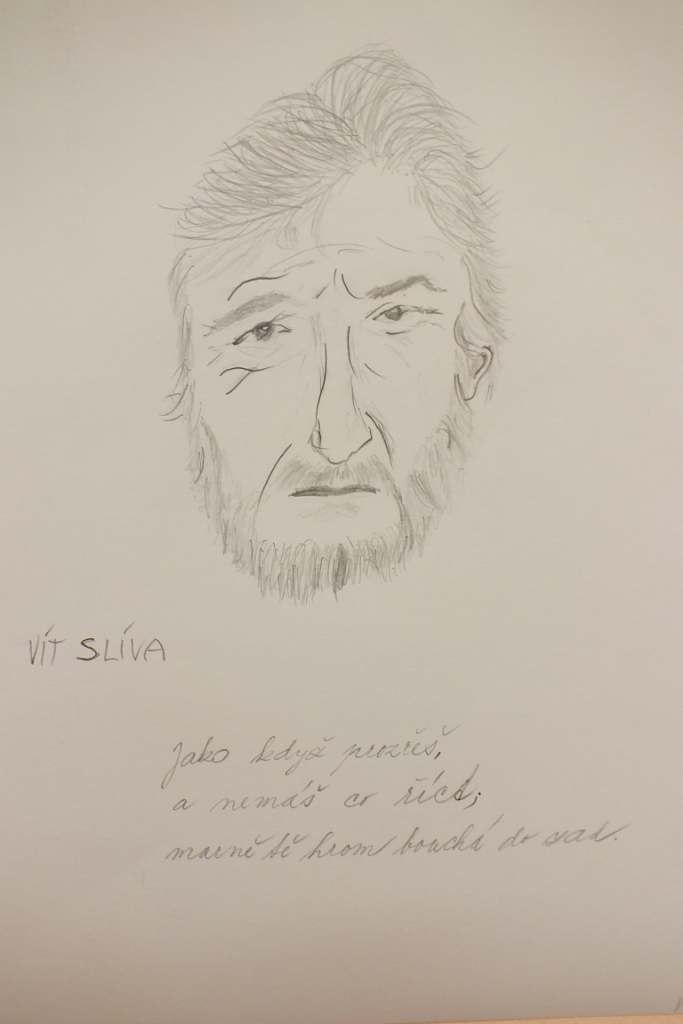 VÍT SLÍVA
Jako když prozřeš,
a nemáš co říct;
marně tě hrom bouchá do zad.